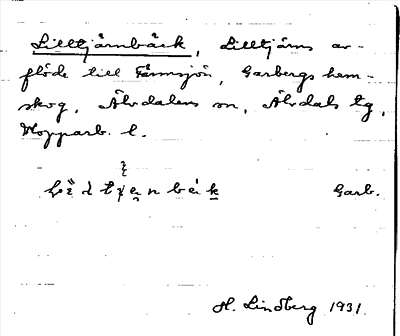 Lilltjärnbäck, Lilltjärns av-
flöde till Tärnsjön, Garbergs hem-
skog, Älvdalens sn, Älvdals tg,
Kopparb. l.
Garb.
H. Lindberg 1931.